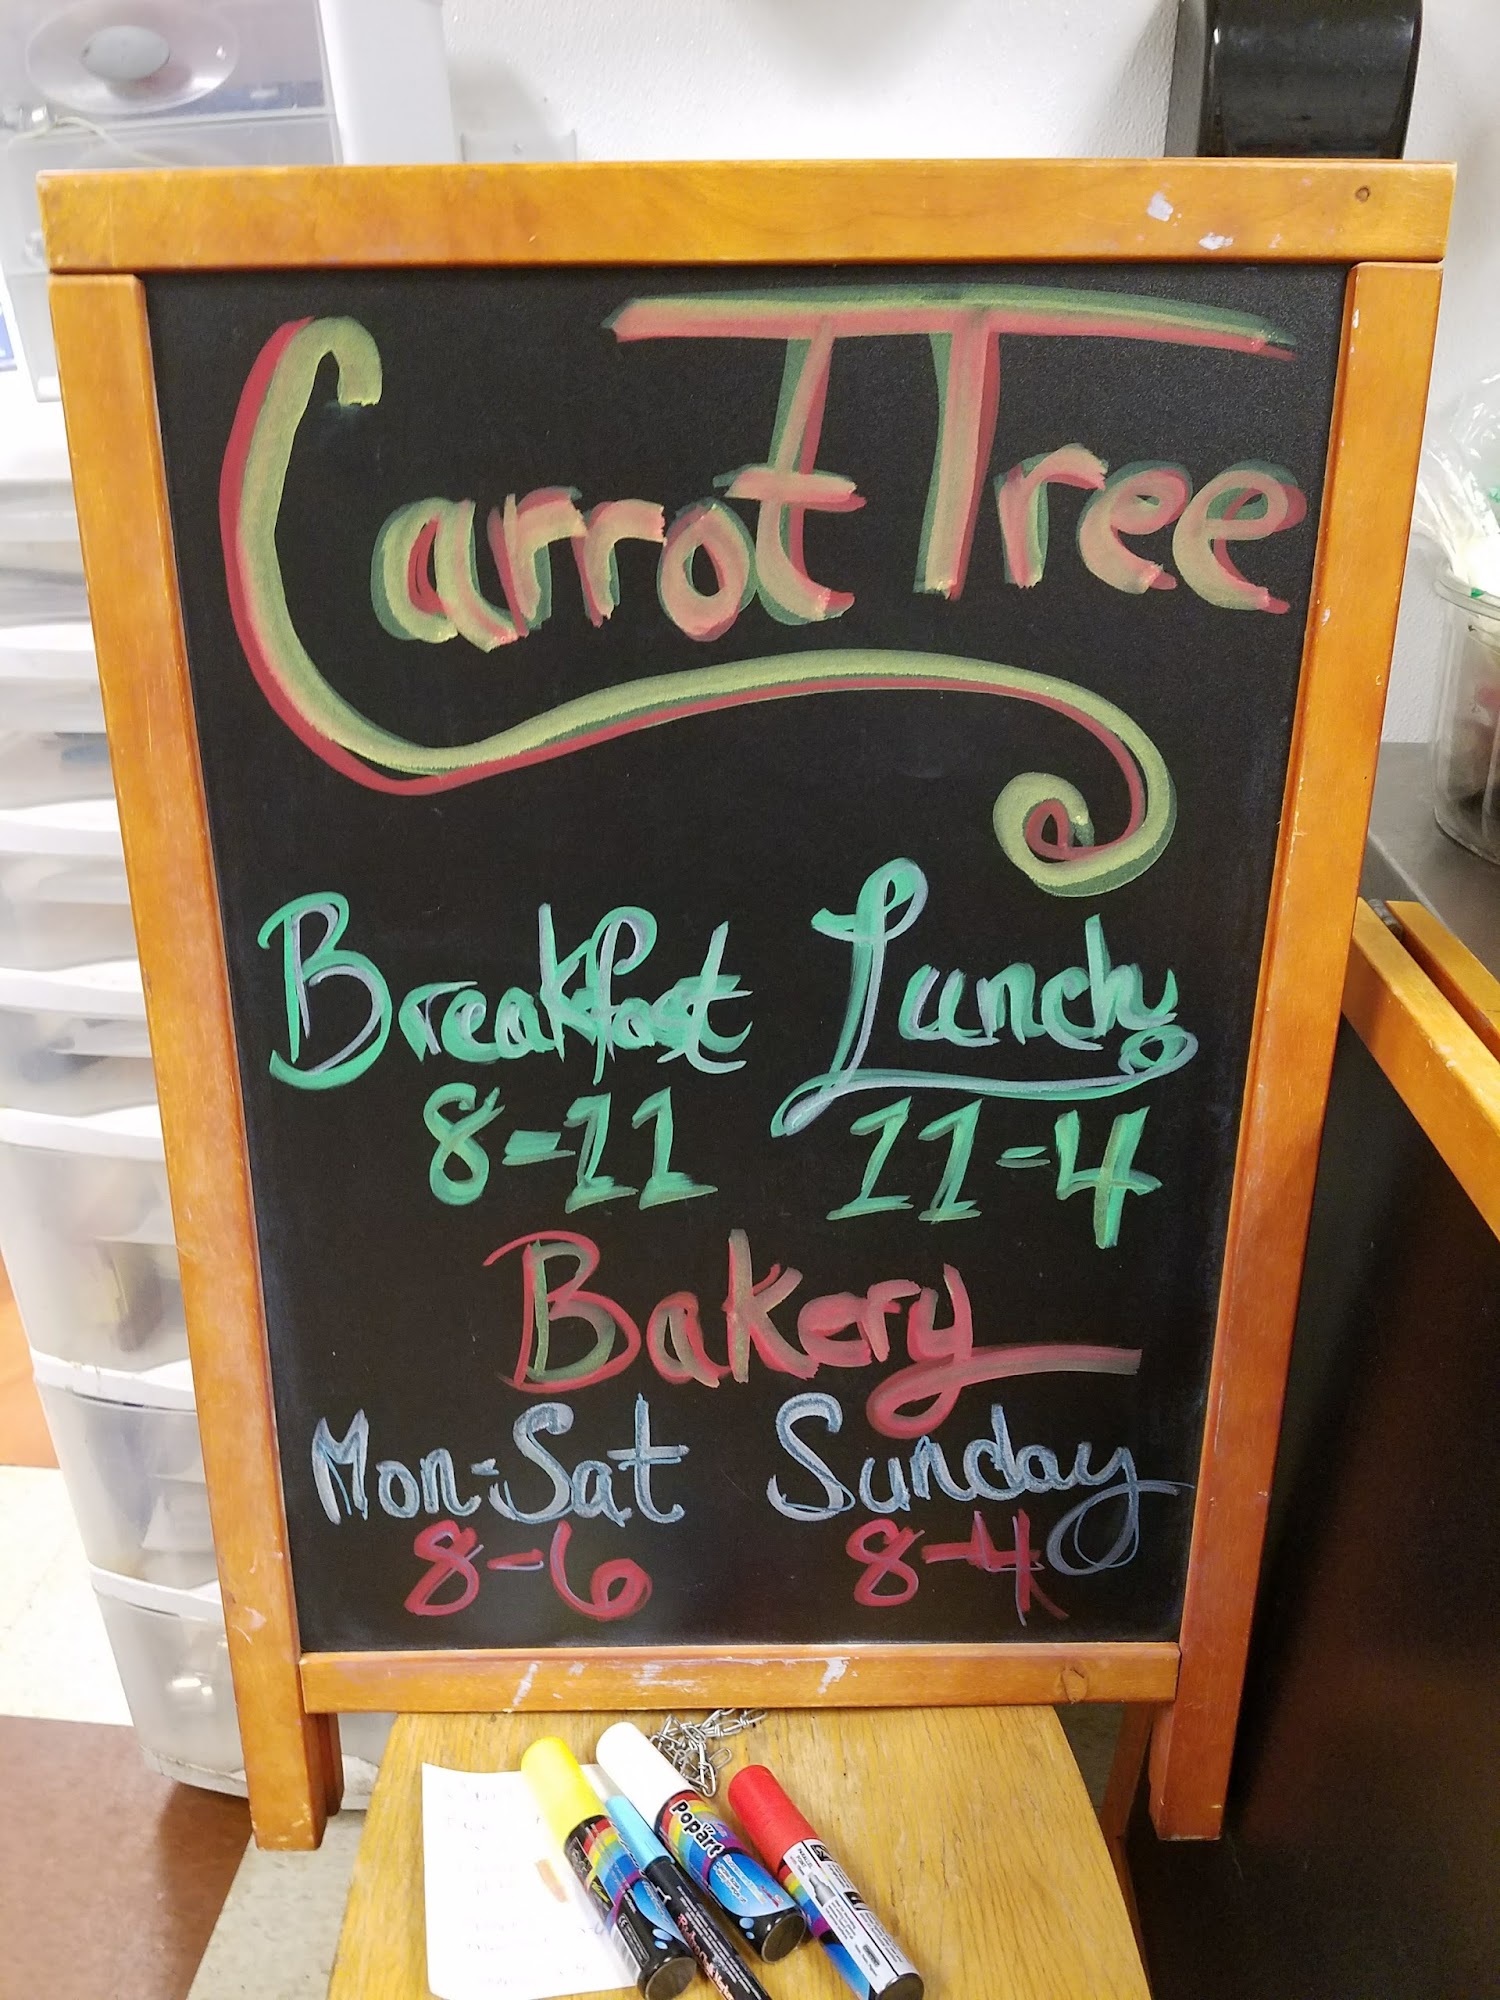 Carrot Tree
Breakfast Lunch
8-11 11-4
Bakery
Mon-Sat Sunday
8-6 8-4
Popart